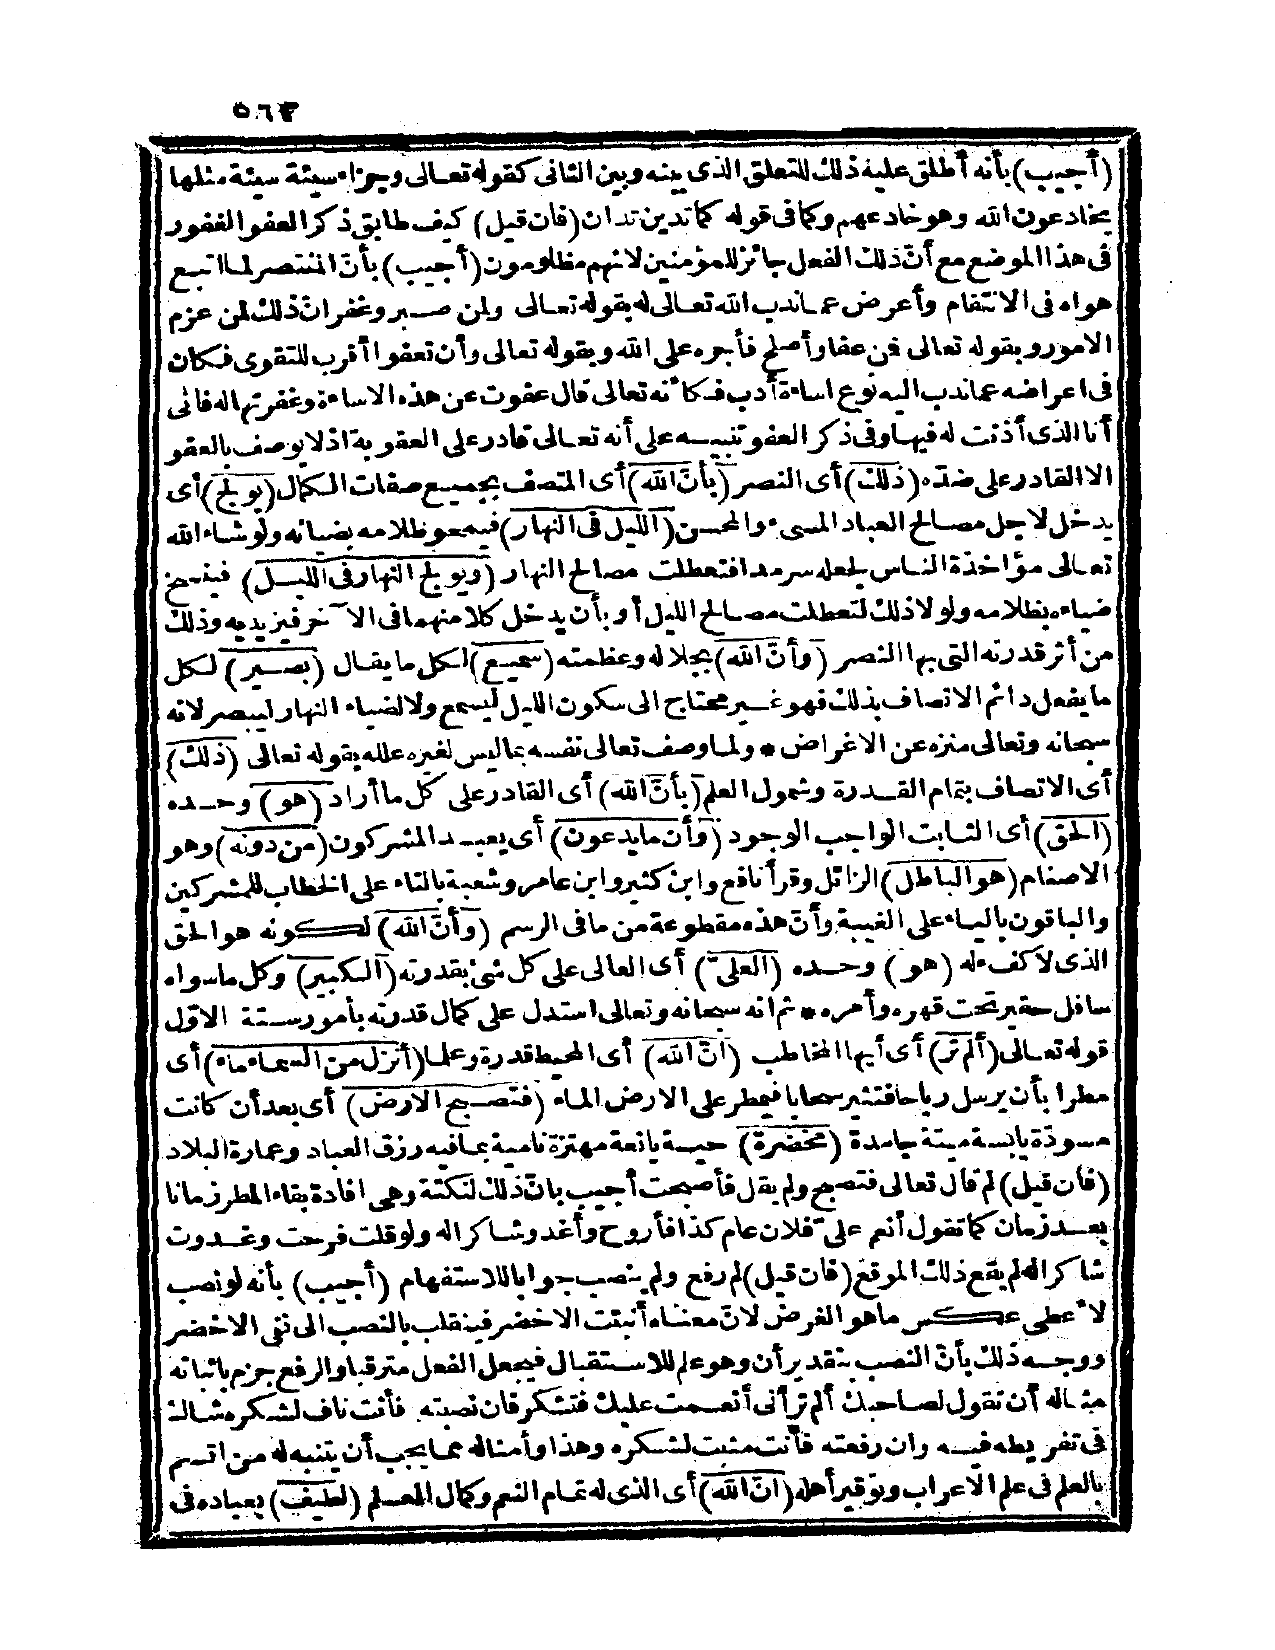 ٥٦٣
(أجيب) بأنه أطلق عليه ذلك للتعلق الذى بينه وبين الثانى كقوله تعالى وجزاء سيئة سيئة مثلها
يخادعون الله وهو خادعهم وكما فى قوله كما تدين تدان (فان قيل) كيف طابق ذكر العفو الغفور
فى هذا الموضع مع أنّ ذلك الفعل جائز للمؤمنين لانهم مظلومون (أجيب) بأنّ المنتصر لما اتبع
هواه فى الانتقام وأعرض عما ندب الله تعالى له بقوله تعالى ولمن صبر وغفر انّ ذلك لمن عزم
الامور وبقوله تعالى فمن عفا وأصلح فأجره على الله وبقوله تعالى وأن تعفوا أقرب للتقوى فكان
فى اعراضه عما ندب اليه نوع اساءة أدب فكا ٔنه تعالى قال عفوت عن هذه الاساءة وغفرتها له فانى
أنا الذى أذنت له فيها وفى ذكر العفو تنبيه على أنه تعالى قادر على العقوبة اذ لا يوصف بالعفو
الا القادر على ضدّه (ذلك) أى النصر (بأنّ الله) أى المتصف بجميع صفات الكمال (يولج) أى
يدخل لاجل مصالح العباد المسىء والمحسن (الليل فى النهار) فيمحو ظلامه بضيائه ولو شاء الله
تعالى مؤاخذة الناس لجعله سرمدا فتعطلت مصالح النهار (ويولج النهار فى الليل) فينسخ
ضياءه بظلامه ولولا ذلك لتعطلت مصالح الليل أو بأن يدخل كلا منهما فى الآخر فيزيد به وذلك
من أثر قدرته التى بها النصر (وأنّ الله) بجلاله وعظمته (سميع) لكل ما يقال (بصير) لكل
ما يفعل دائم الاتصاف بذلك فهو غير محتاج الى سكون الليل ليسمع ولا لضياء النهار ليبصر لانه
سبحانه وتعالى منزه عن الاغراض * ولما وصف تعالى نفسه بما ليس لغيره علله بقوله تعالى (ذلك)
أى الاتصاف بتمام القدرة وشمول العلم (بأنّ الله) أى القادر على كل ما أراد (هو) وحده
(الحق) أى الثابت الواجب الوجود (وأن ما يدعون) أى يعبد المشركون (من دونه) وهو
الاصنام (هو الباطل) الزائل وقرأ نافع وابن كثير وابن عامر وشعبة بالتاء على الخطاب للمشركين
والباقون بالياء على الغيبة وأنّ هذه مقطوعة من ما فى الرسم (وأنّ الله) لكونه هو الحق
الذى لا كفء له (هو) وحده (العلىّ) أى العالى على كل شئ بقدرته (الكبير) وكل ما سواه
سافل حقير تحت قهره وأمره * ثم انه سبحانه وتعالى استدل على كمال قدرته بأمور ستة الاوّل
قوله تعالى (ألم تر) أى أيها المخاطب (انّ الله) أى المحيط قدرة وعلما (أنزل من السماء ماء) أى
مطرا بأن يرسل رياحا فتثير سحابا فيمطر على الارض الماء (فتصبح الارض) أى بعد أن كانت
مسودّة يابسة ميتة جامدة (مخضرة) حية يانعة مهتزة نامية بما فيه رزق العباد وعمارة البلاد
(فان قيل) لم قال تعالى فتصبح ولم يقل فأصبحت أجيب بانّ ذلك لنكتة وهى افادة بقاء المطر زمانا
بعد زمان كما تقول أنعم علىّ فلان عام كذا فأروح وأغدو شاكرا له ولو قلت فرحت وغدوت
شاكرا له لم يقع ذلك الموقع (فان قيل) لم رفع ولم ينصب جوابا للاستفهام (أجيب) بأنه لو نصب
لأعطى عكس ما هو الغرض لانّ معناه أثبتت الاخضر فينقلب بالنصب الى نفى الاخضر
ووجه ذلك بأنّ النصب بتقدير أن وهو علم للاستقبال فيجعل الفعل مترقبا والرفع جزم باثباته
مثاله أن تقول لصاحبك ألم تر أنى أنعمت عليك فتشكر فان نصبته فأنت ناف لشكره شاك
فى تفريطه فيه وان رفعته فأنت مثبت لشكره وهذا وأمثاله مما يجب أن يتنبه له من اتسم
بالعلم فى علم الاعراب وتوقير أهله (انّ الله) أى الذى له تمام النعم وكمال العلم (لطيف) بعباده فى